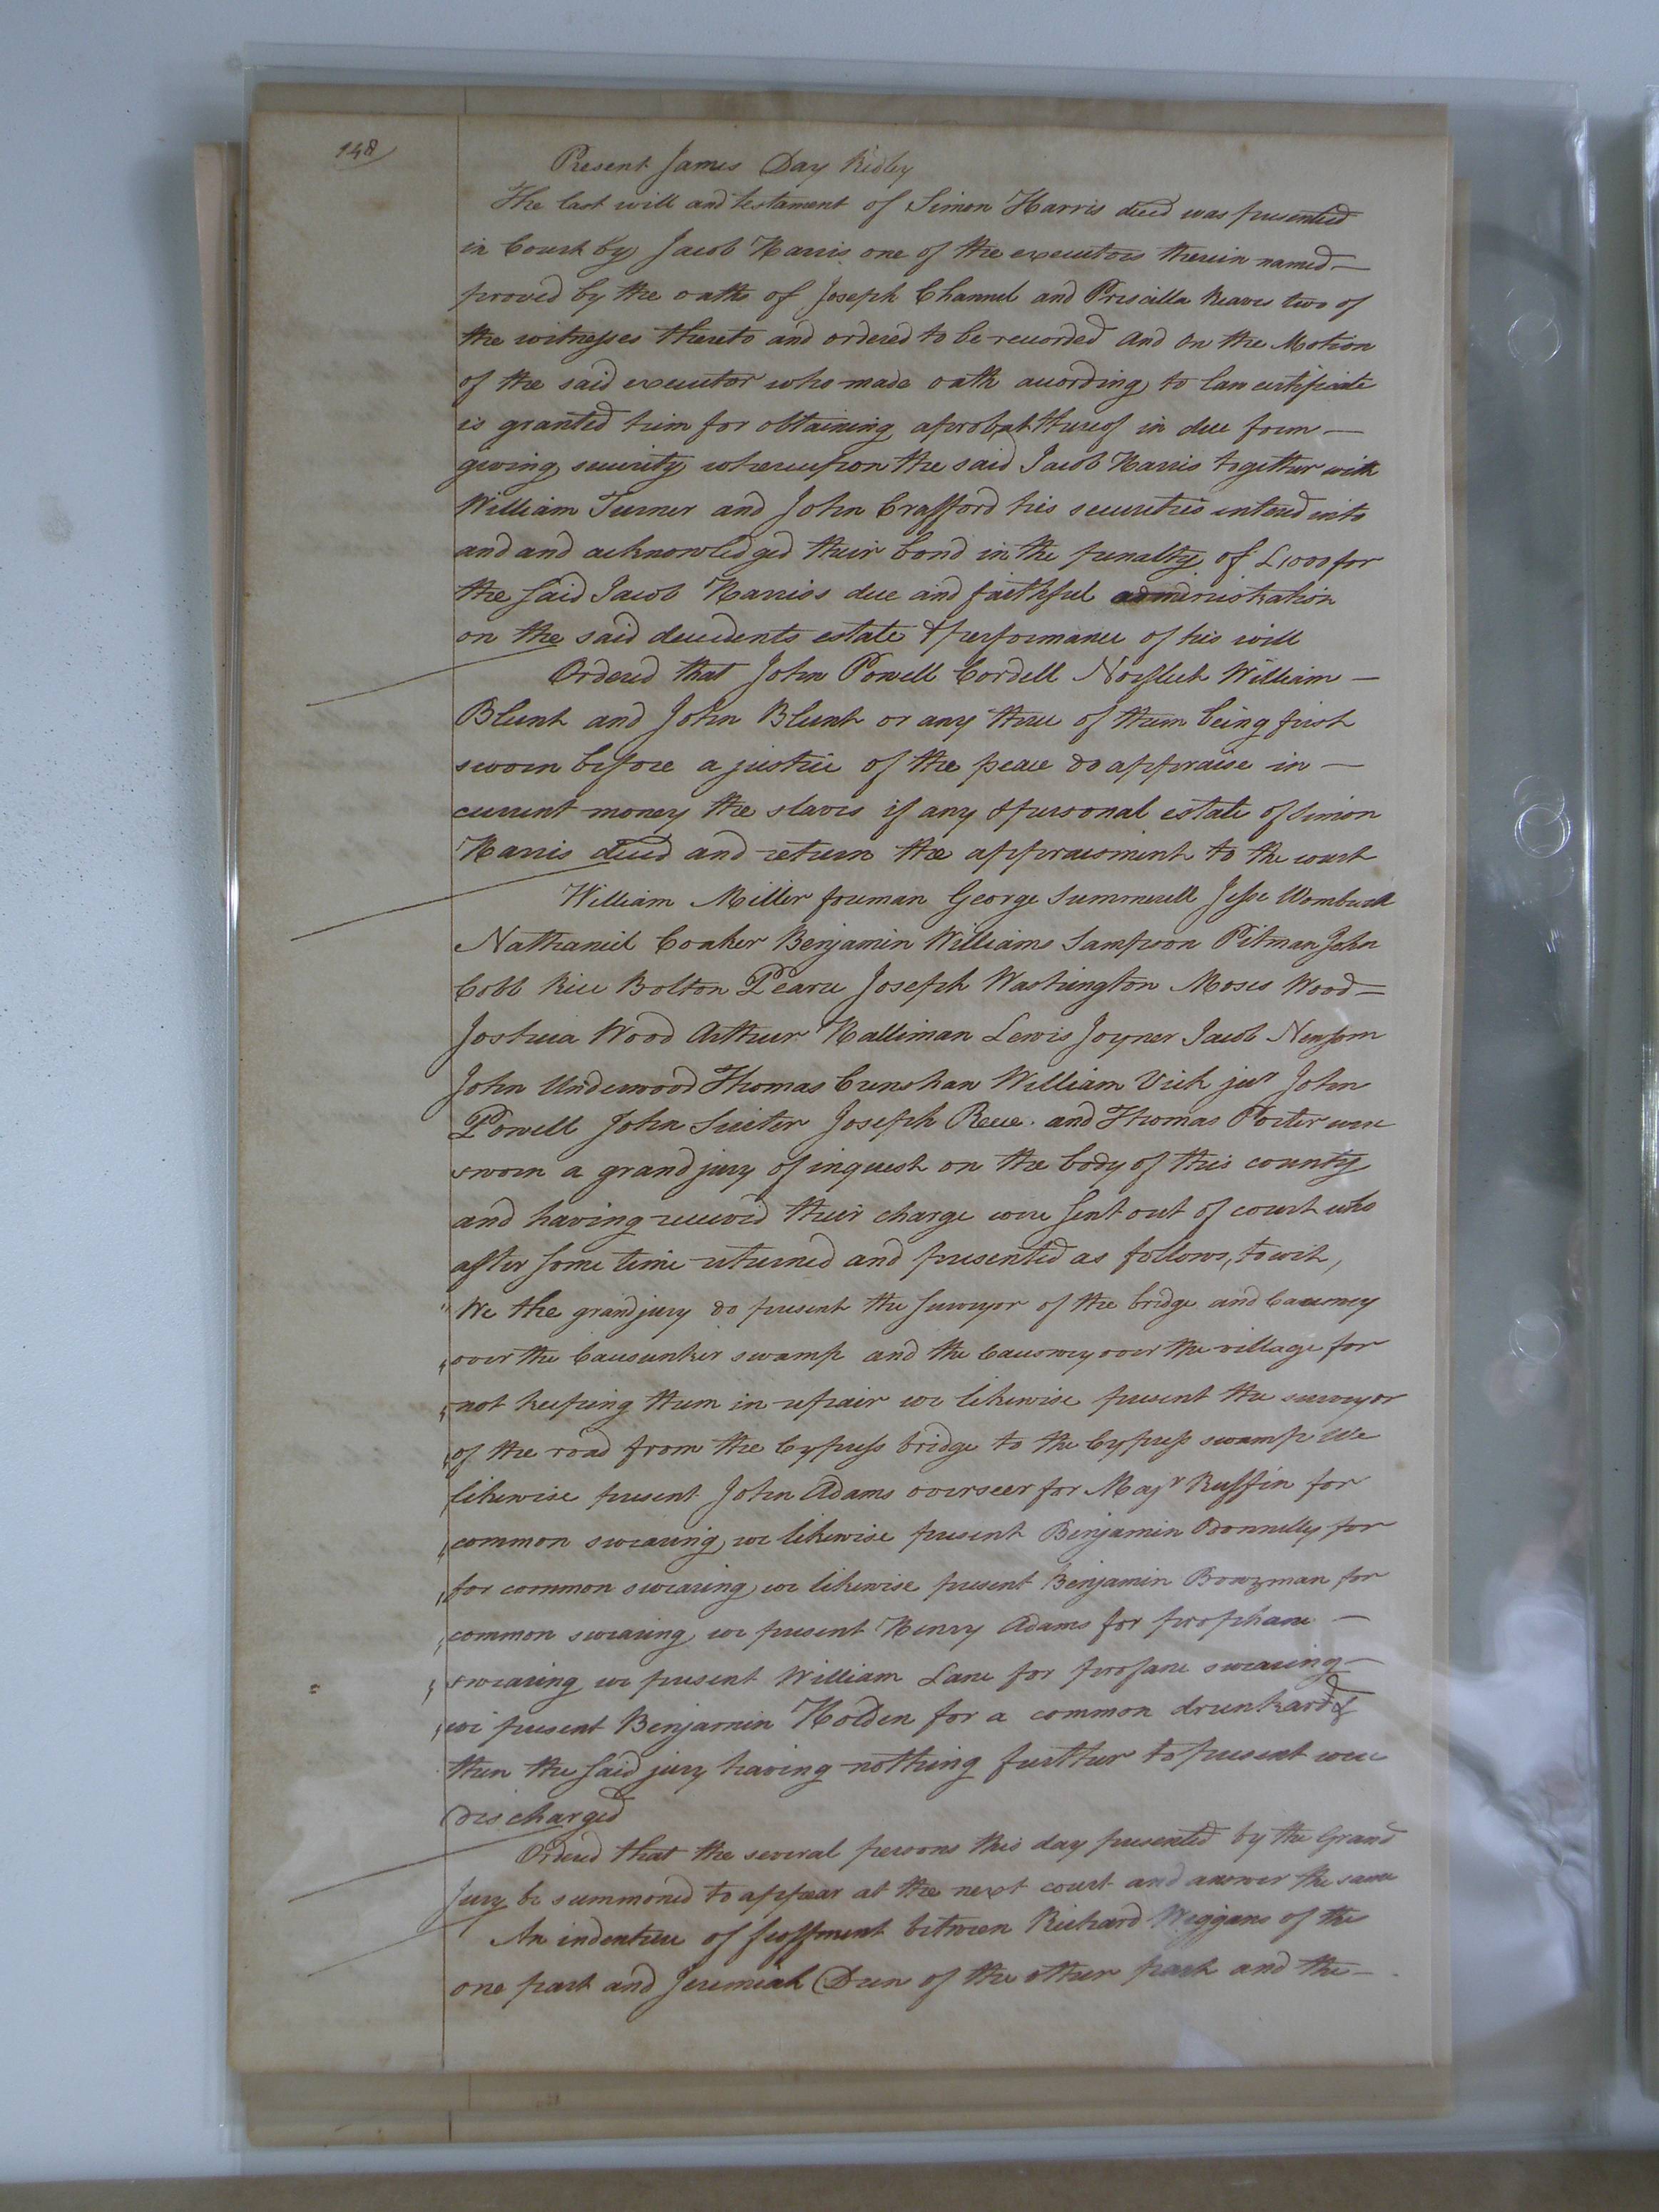 148
Present James Day Ridley
The last will and testament of Simon Harris decd was presented
in Court by Jacob Harris one of the executors therein named —
proved by the oaths of Joseph Channel and Priscilla Reaves two of
the witnesses thereto and ordered to be recorded And On the Motion
of the said executor who made oath according to law certificate
is granted him for obtaining a probat thereof in due form —
giving security whereupon the said Jacob Harris together with
William Turner and John Crafford his securities entered into
and and acknowledged their bond in the penalty of £1000 for
the said Jacob Harris's due and faithful administration
on the said decedents estate & performance of his will
Ordered that John Powell Cordell Norfleet William —
Blunt and John Blunt or any three of them being first
sworn before a justice of the peace do appraise in —
current money the slaves if any & personal estate of Simon
Harris decd and return the appraisment to the court
William Miller foreman George Summerell Jesse Wombwell
Nathaniel Coaker Benjamin Williams Sampson Pitman John
Cobb Rice Bolton Pearce Joseph Washington Moses Wood —
Joshua Wood Arthur Halliman Lewis Joyner Jacob Newsom
John Underwood Thomas Crenshaw William Vick junr John
Powell John Suiter Joseph Reece and Thomas Porter were
sworn a grand jury of inquest on the body of this county
and having received their charge were sent out of court who
after some time returned and presented as follows, to wit,
" We the grand jury do present the surveyor of the bridge and Causwey
" over the swamp and the Causwey over the village for
" not keeping them in repair we likewise present the surveyor
" of the road from the Cypress bridge to the Cypress swamp We
" likewise present John Adams overseer for Majr Ruffin for
" common swearing we likewise present Benjamin Odonnelly for
" for common swearing we likewise present Benjamin Bowzman for
" common swearing we present Henry Adams for prophane —
" swearing we present William Lane for profane swearing —
" we present Benjamin Holden for a common drunkard &
then the said jury having nothing further to present were
discharged
Ordered that the several persons this day presented by the Grand
Jury be summoned to appear at the next court and answer the same
An indenture of feoffment between Richard Wiggans of the
one part and Jeremiah Dren of the other part and the —